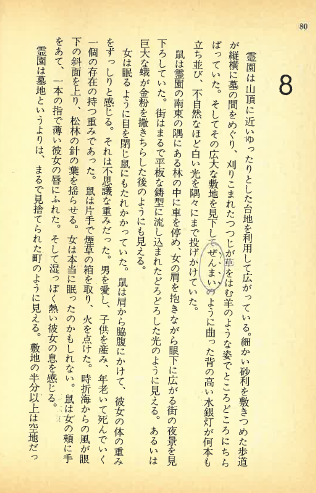 80
8
霊園は山頂に近いゆったりとした台地を利用して広がっている。細かい砂利を敷きつめた歩道
が縦横に墓の間をめぐり、刈りこまれたつつじが草をはむ羊のような姿でところどころにちら
ばっていた。そしてその広大な敷地を見下し、ぜんまいのように曲った背の高い水銀灯が何本も
立ち並び、不自然なほど白い光を隅々にまで投げかけていた。
鼠は霊園の南東の隅にある林の中に車を停め、女の肩を抱きながら眼下に広がる街の夜景を見
下ろしていた。街はまるで平板な鋳型に流し込まれたどろどろした光のように見える。あるいは
巨大な蛾が金粉を撒きちらした後のようにも見える。
女は眠るように目を閉じ鼠にもたれかかっていた。鼠は肩から脇腹にかけて、彼女の体の重み
をずっしりと感じる。それは不思議な重みだった。男を愛し、子供を産み、年老いて死んでいく
一個の存在の持つ重みであった。鼠は片手で煙草の箱を取り、火を点けた。時折海からの風が眼
下の斜面を上り、松林の針の葉を揺らせる。女は本当に眠ったのかもしれない。鼠は女の頬に手
をあて、一本の指で薄い彼女の唇にふれた。そして湿っぽく熱い彼女の息を感じる。
霊園は墓地というよりは、まるで見捨てられた町のように見える。敷地の半分以上は空地だっ